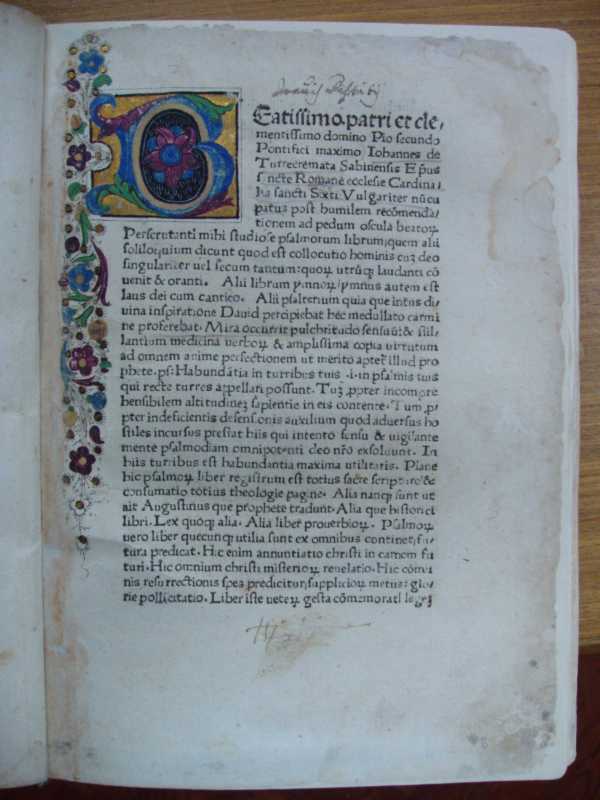 BEatissimo patri et cle,
mentissimo domino Pio secundo
Pontifici maximo Iohannes de
Turrecremata Sabinensis Ep̄us
sācte Romane ecclesie Cardina,
lis sancti Sixti Vulgariter nūcu
patus post humilem recōmenda
tionem ad pedum oscula beatoꝝ
Perscrutanti mihi studiose psalmorum librum; quem alii
soliloquium dicunt quod est collocutio hominis cuꝫ deo
singulariter uel secum tantum: quoꝝ utrūqꝫ laudanti cō
uenit & oranti. Alii librum ymnoꝝ ymnus autem est
laus dei cum cantico. Alii psalterium quia que intus di
uina inspiratione Dauid percipiebat hec medullato carmi
ne proferebat. Mira occurrit pulchritudo sensuū: & stil,
lantium medicina verboꝝ & amplissima copia virtutum
ad omnem anime perfectionem ut merito aptet illud pro
phete. ps. Habundātia in turribus tuis .i. in psalmis tuis
qui recte turres appellari possunt. Tuꝫ ꝓpter incompre
hensibilem altitudineꝫ sapientie in eis contente. Tum ꝓ
pter indeficientis defensionis auxilium quod aduersus ho
stiles incursus prestat hiis qui intento sensu & uigilante
mente psalmodiam omnipotenti deo nrō exsoluunt. In
hiis turribus est habundantia maxima utilitatis. Plane
hic psalmoꝝ liber registrum est totius sacre scripture &
consumatio totius theologie pagine. Alia nanqꝫ sunt ut
ait Augustinus que prophete tradunt. Alia que historici
libri. Lex quoqꝫ alia. Alia liber prouerbioꝝ. Psalmoꝝ
uero liber quecunqꝫ utilia sunt ex omnibus continet; fu,
tura predicat. Hic enim annuntiatio christi in carnem fu
turi. Hic omnium christi misterioꝝ reuelatio. Hic cōmu
nis resurrectionis spes predicitur; supplicioꝝ metus: glo,
rie pollicitatio. Liber iste veteꝝ gesta cōmemorat;